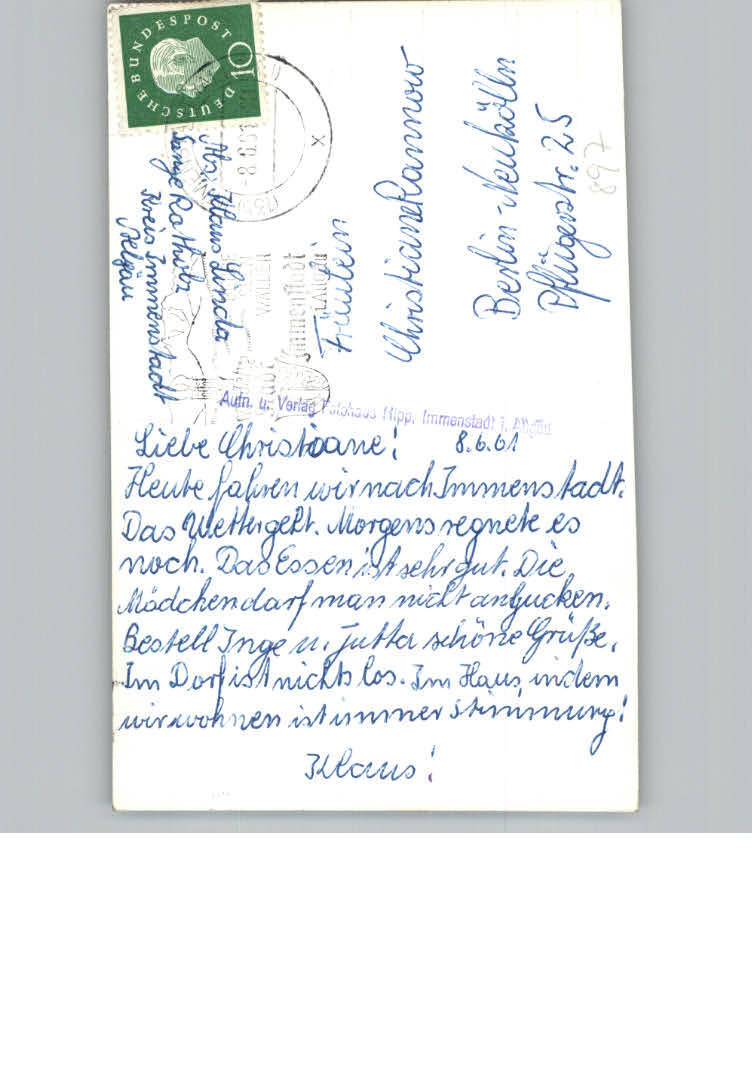 DEUTSCHE BUNDESPOST
10
-8.6.61
Immenstadt
WALTEN
Abs. Klaus Linda
Kreis Immenstadt
Fräulein
Christiane Rannow
Berlin-Neukölln
Pflügerstr. 25
897
Aufn. u. Verlag Fotohaus Hipp, Immenstadt i. Allgäu
Liebe Christiane! 8.6.61
Heute fahren wir nach Immenstadt.
Das Wetter geht. Morgens regnete es
noch. Das Essen ist sehr gut. Die
Mädchen darf man nicht angucken.
Bestell Inge u. Jutta schöne Grüße.
Im Dorf ist nichts los. Im Haus indem
wir wohnen ist immer Stimmung!
Klaus!